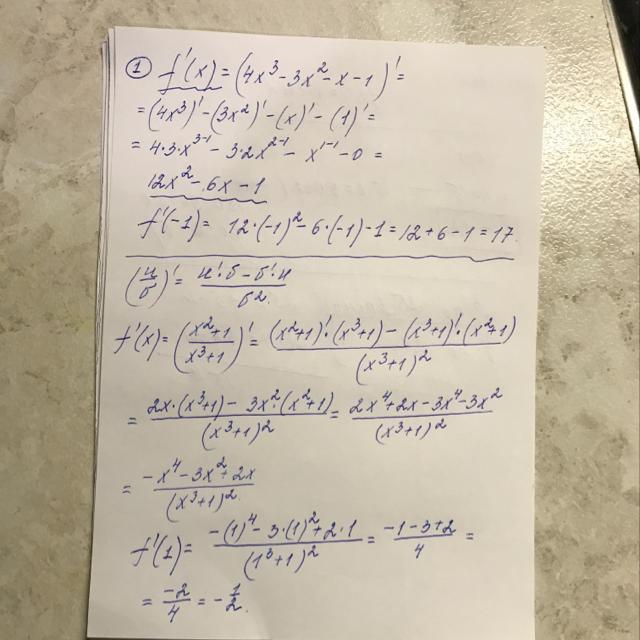 ① f'(x) = (4x³ - 3x² - x - 1)' =
= (4x³)' - (3x²)' - (x)' - (1)' =
= 4·3·x³⁻¹ - 3·2x²⁻¹ - x¹⁻¹ - 0 =
12x² - 6x - 1
f'(-1) = 12·(-1)² - 6·(-1) - 1 = 12 + 6 - 1 = 17.
(и/б)' = (и'·б - б'·и)/б²
f'(x) = ((x²+1)/(x³+1))' = ((x²+1)'·(x³+1) - (x³+1)'·(x²+1))/(x³+1)²
= (2x·(x³+1) - 3x²·(x²+1))/(x³+1)² = (2x⁴+2x-3x⁴-3x²)/(x³+1)²
= (-x⁴-3x²+2x)/(x³+1)²
f'(1) = (-(1)⁴ - 3·(1)² + 2·1)/(1³+1)² = (-1-3+2)/4 =
= -2/4 = -1/2.